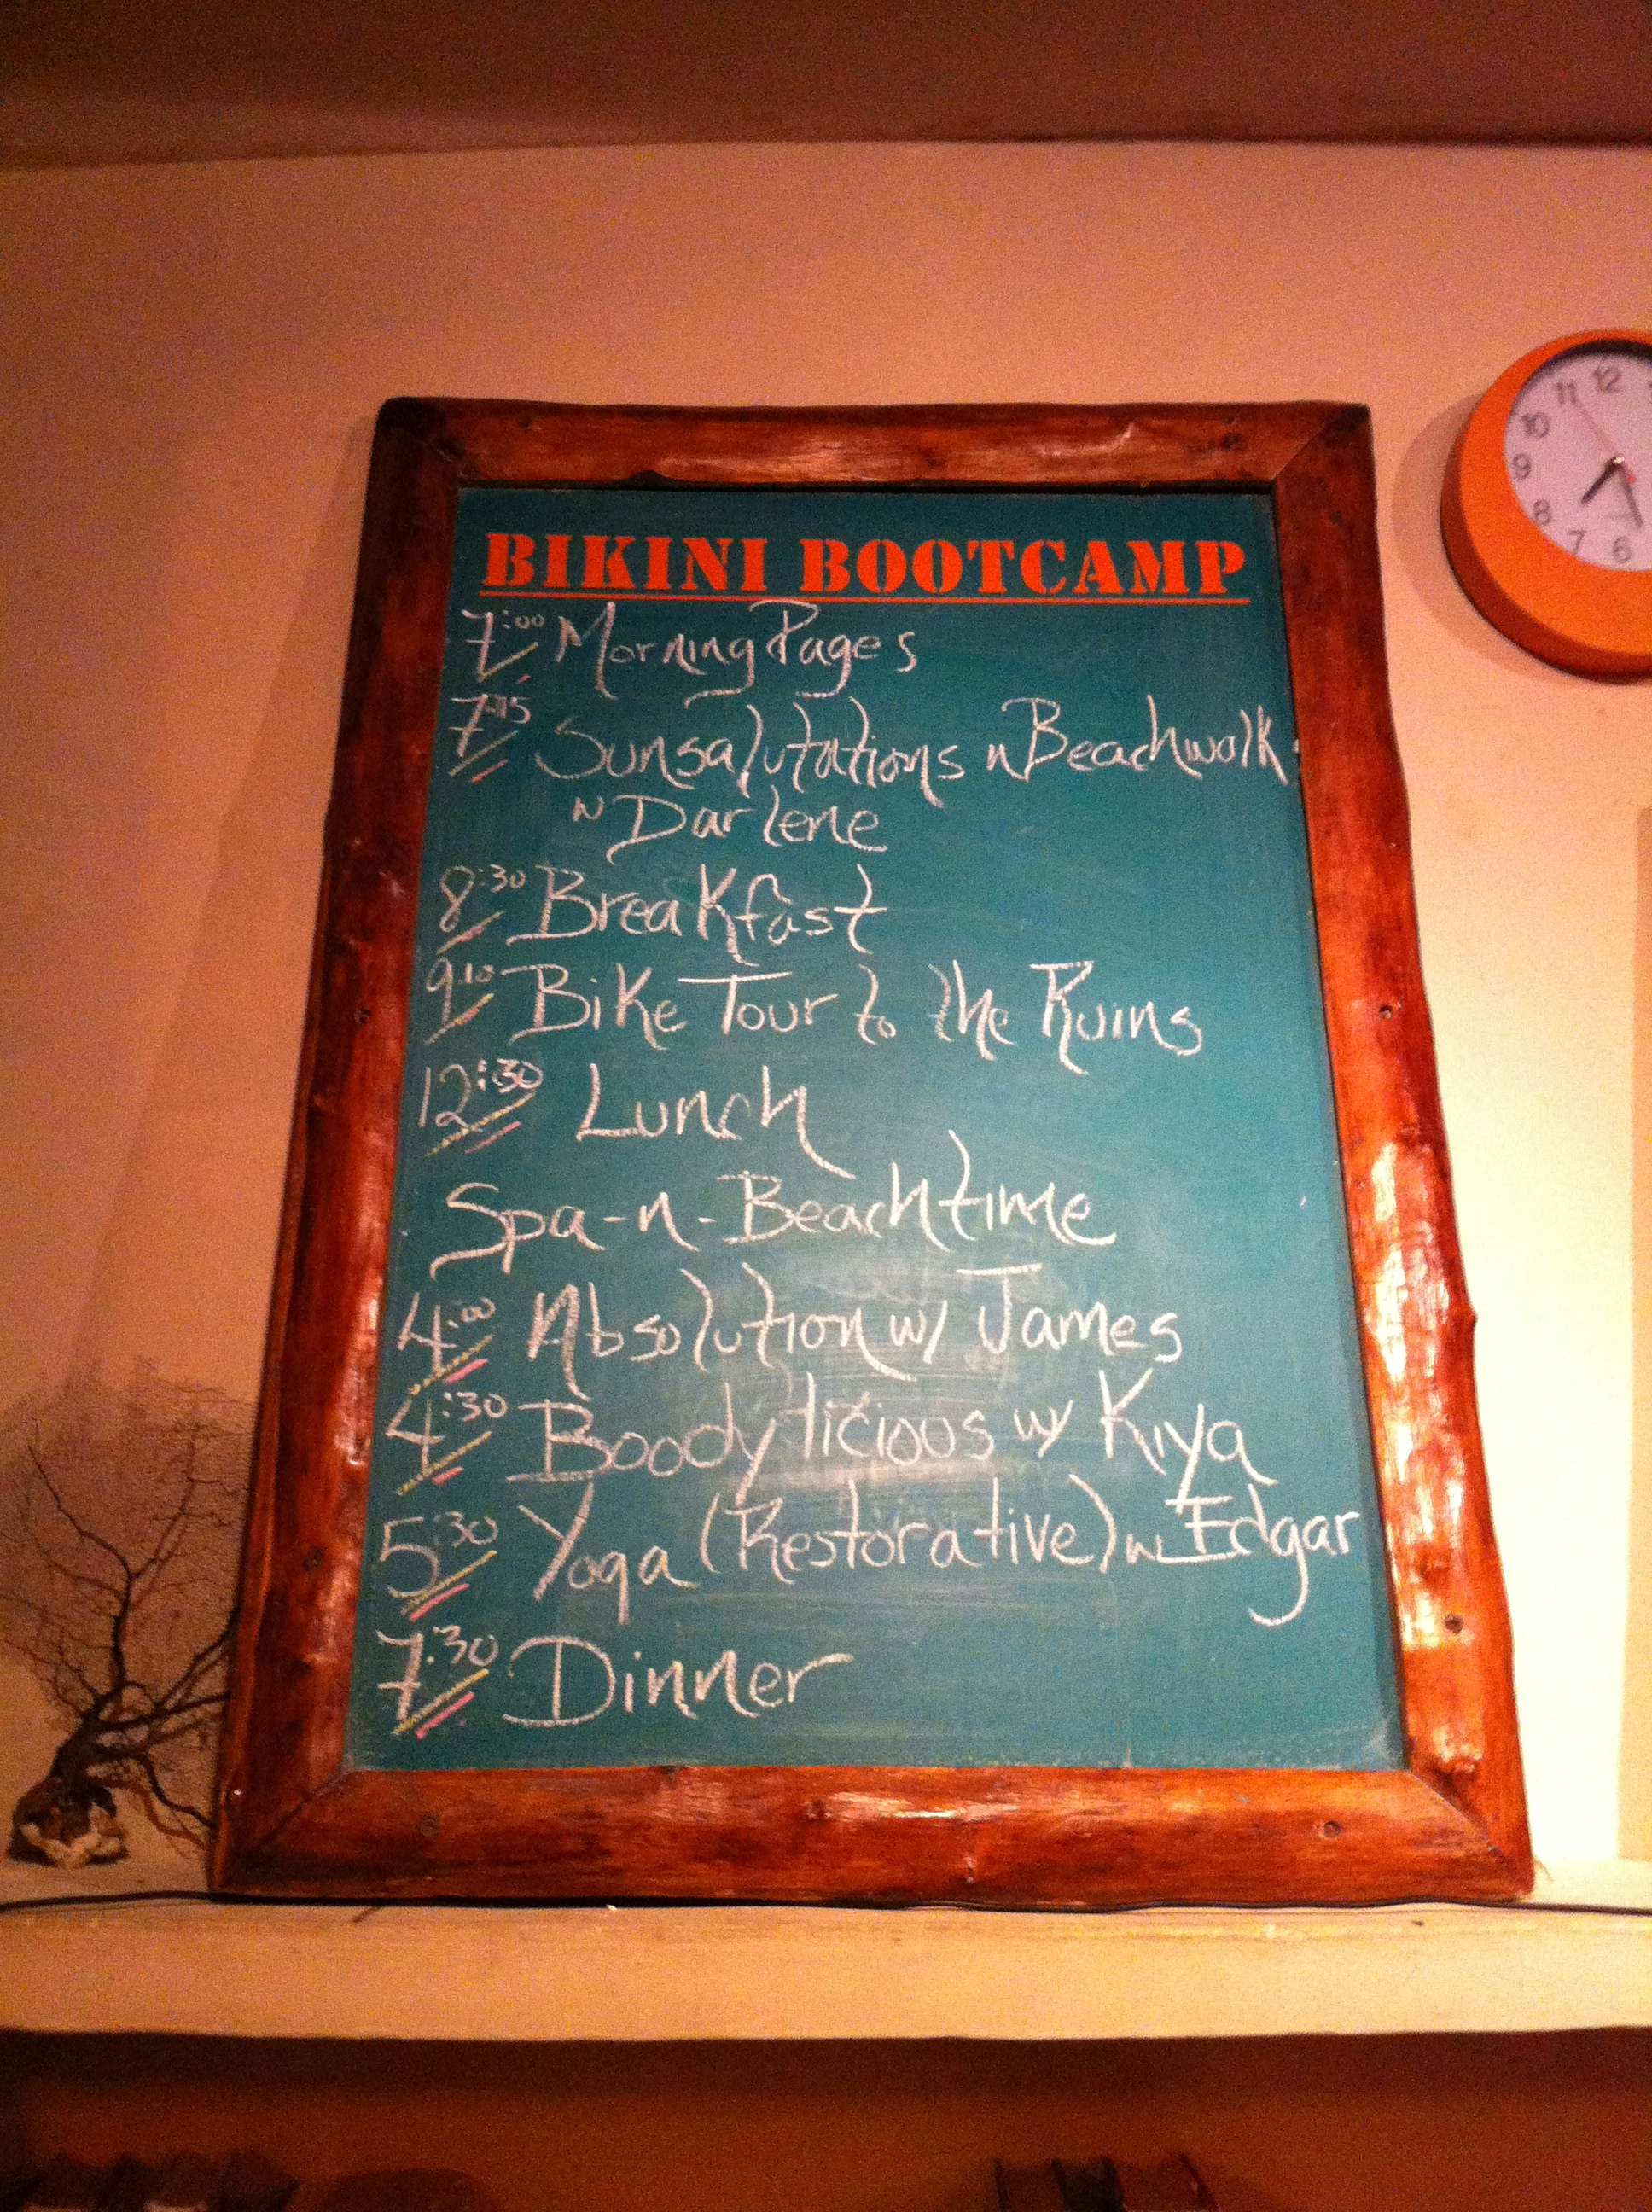 BIKINI BOOTCAMP
7:00 Morning Pages
7:15 Sunsalutations n Beachwalk
w Darlene
8:30 Breakfast
9:10 Bike Tour to the Ruins
12:30 Lunch
Spa-n-Beachtime
4:00 Absolution w/ James
4:30 Boodylicious w/ Kiya
5:30 Yoga (Restorative) w Edgar
7:30 Dinner
12
11
10
9
8
7
6